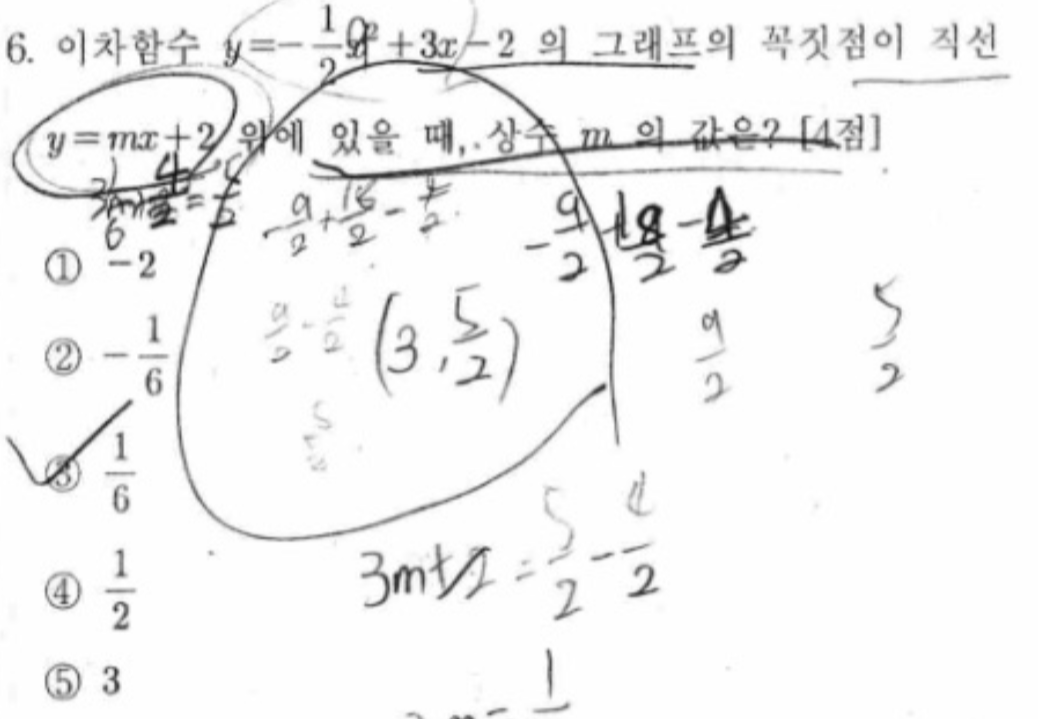 6. 이차함수 y=-\frac{1}{2}x²+3x-2 의 그래프의 꼭짓점이 직선
y=mx+2 위에 있을 때, 상수 m 의 값은? [4점]
-\frac{9}{2}+\frac{18}{2}-\frac{4}{2}
-\frac{9}{2}+\frac{18}{2}-\frac{4}{2}
① -2
\frac{9}{2}-\frac{4}{2}
(3, \frac{5}{2})
\frac{9}{2}
\frac{5}{2}
② -\frac{1}{6}
\frac{5}{2}
③ \frac{1}{6}
3m+2=\frac{5}{2}-\frac{4}{2}
④ \frac{1}{2}
⑤ 3